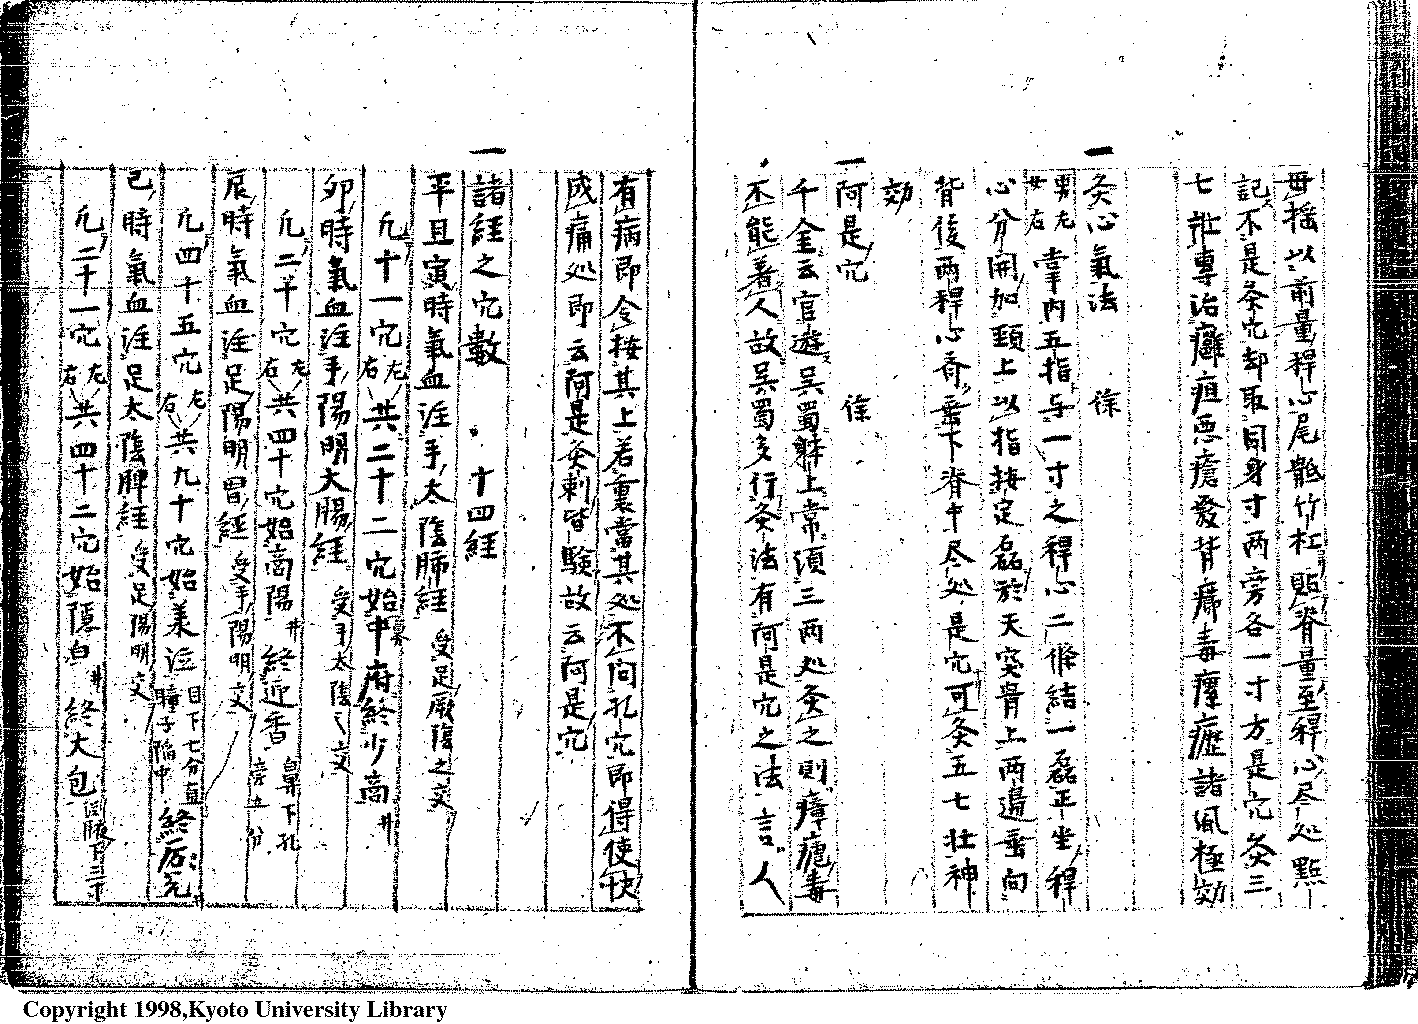 毋揺以前量稈心尾骶竹杠貼脊量至稈心尽处點
記不是条穴却取同身寸两旁各一寸方是穴灸三
七壯專治癰疽恶瘡發背癘毒瘰癧諸風極効
一灸心氣法 徐
男左女右 掌内五指与一寸之稈心二條結一磊正坐稈
心分開加頚上以指按定磊於天突骨上两邉垂向
背後两稈心斉垂下脊中尽处是穴可灸五七壮神
効
一阿是穴 徐
千金云官遊呉蜀躰上常須三两处灸之則瘴瘧毒
不能著人故呉蜀多行灸法有阿是穴之法言人
有病即令按其上若裏當其处不问孔穴即得使快
成痛处即云阿是灸刺皆驗故云阿是穴
一諸経之穴數 十四経
平旦寅時氣血注手太陰肺経 受足厥陰之交
凢十一穴 左右 共二十二穴始中府募終少商井
卯時氣血注手陽明大腸経 受手太陰之交
凢二十穴 左右 共四十穴始商陽井 終迎香 鼻下孔旁五分
辰時氣血注足陽明胃経 受手陽明交
凢四十五穴 左右 共九十穴始承泣 目下七分直瞳子陥中 終厲兌
巳時氣血注足太陰脾経 受足陽明交
凢二十一穴 左右 共四十二穴始隱白井 終大包
Copyright 1998,Kyoto University Library